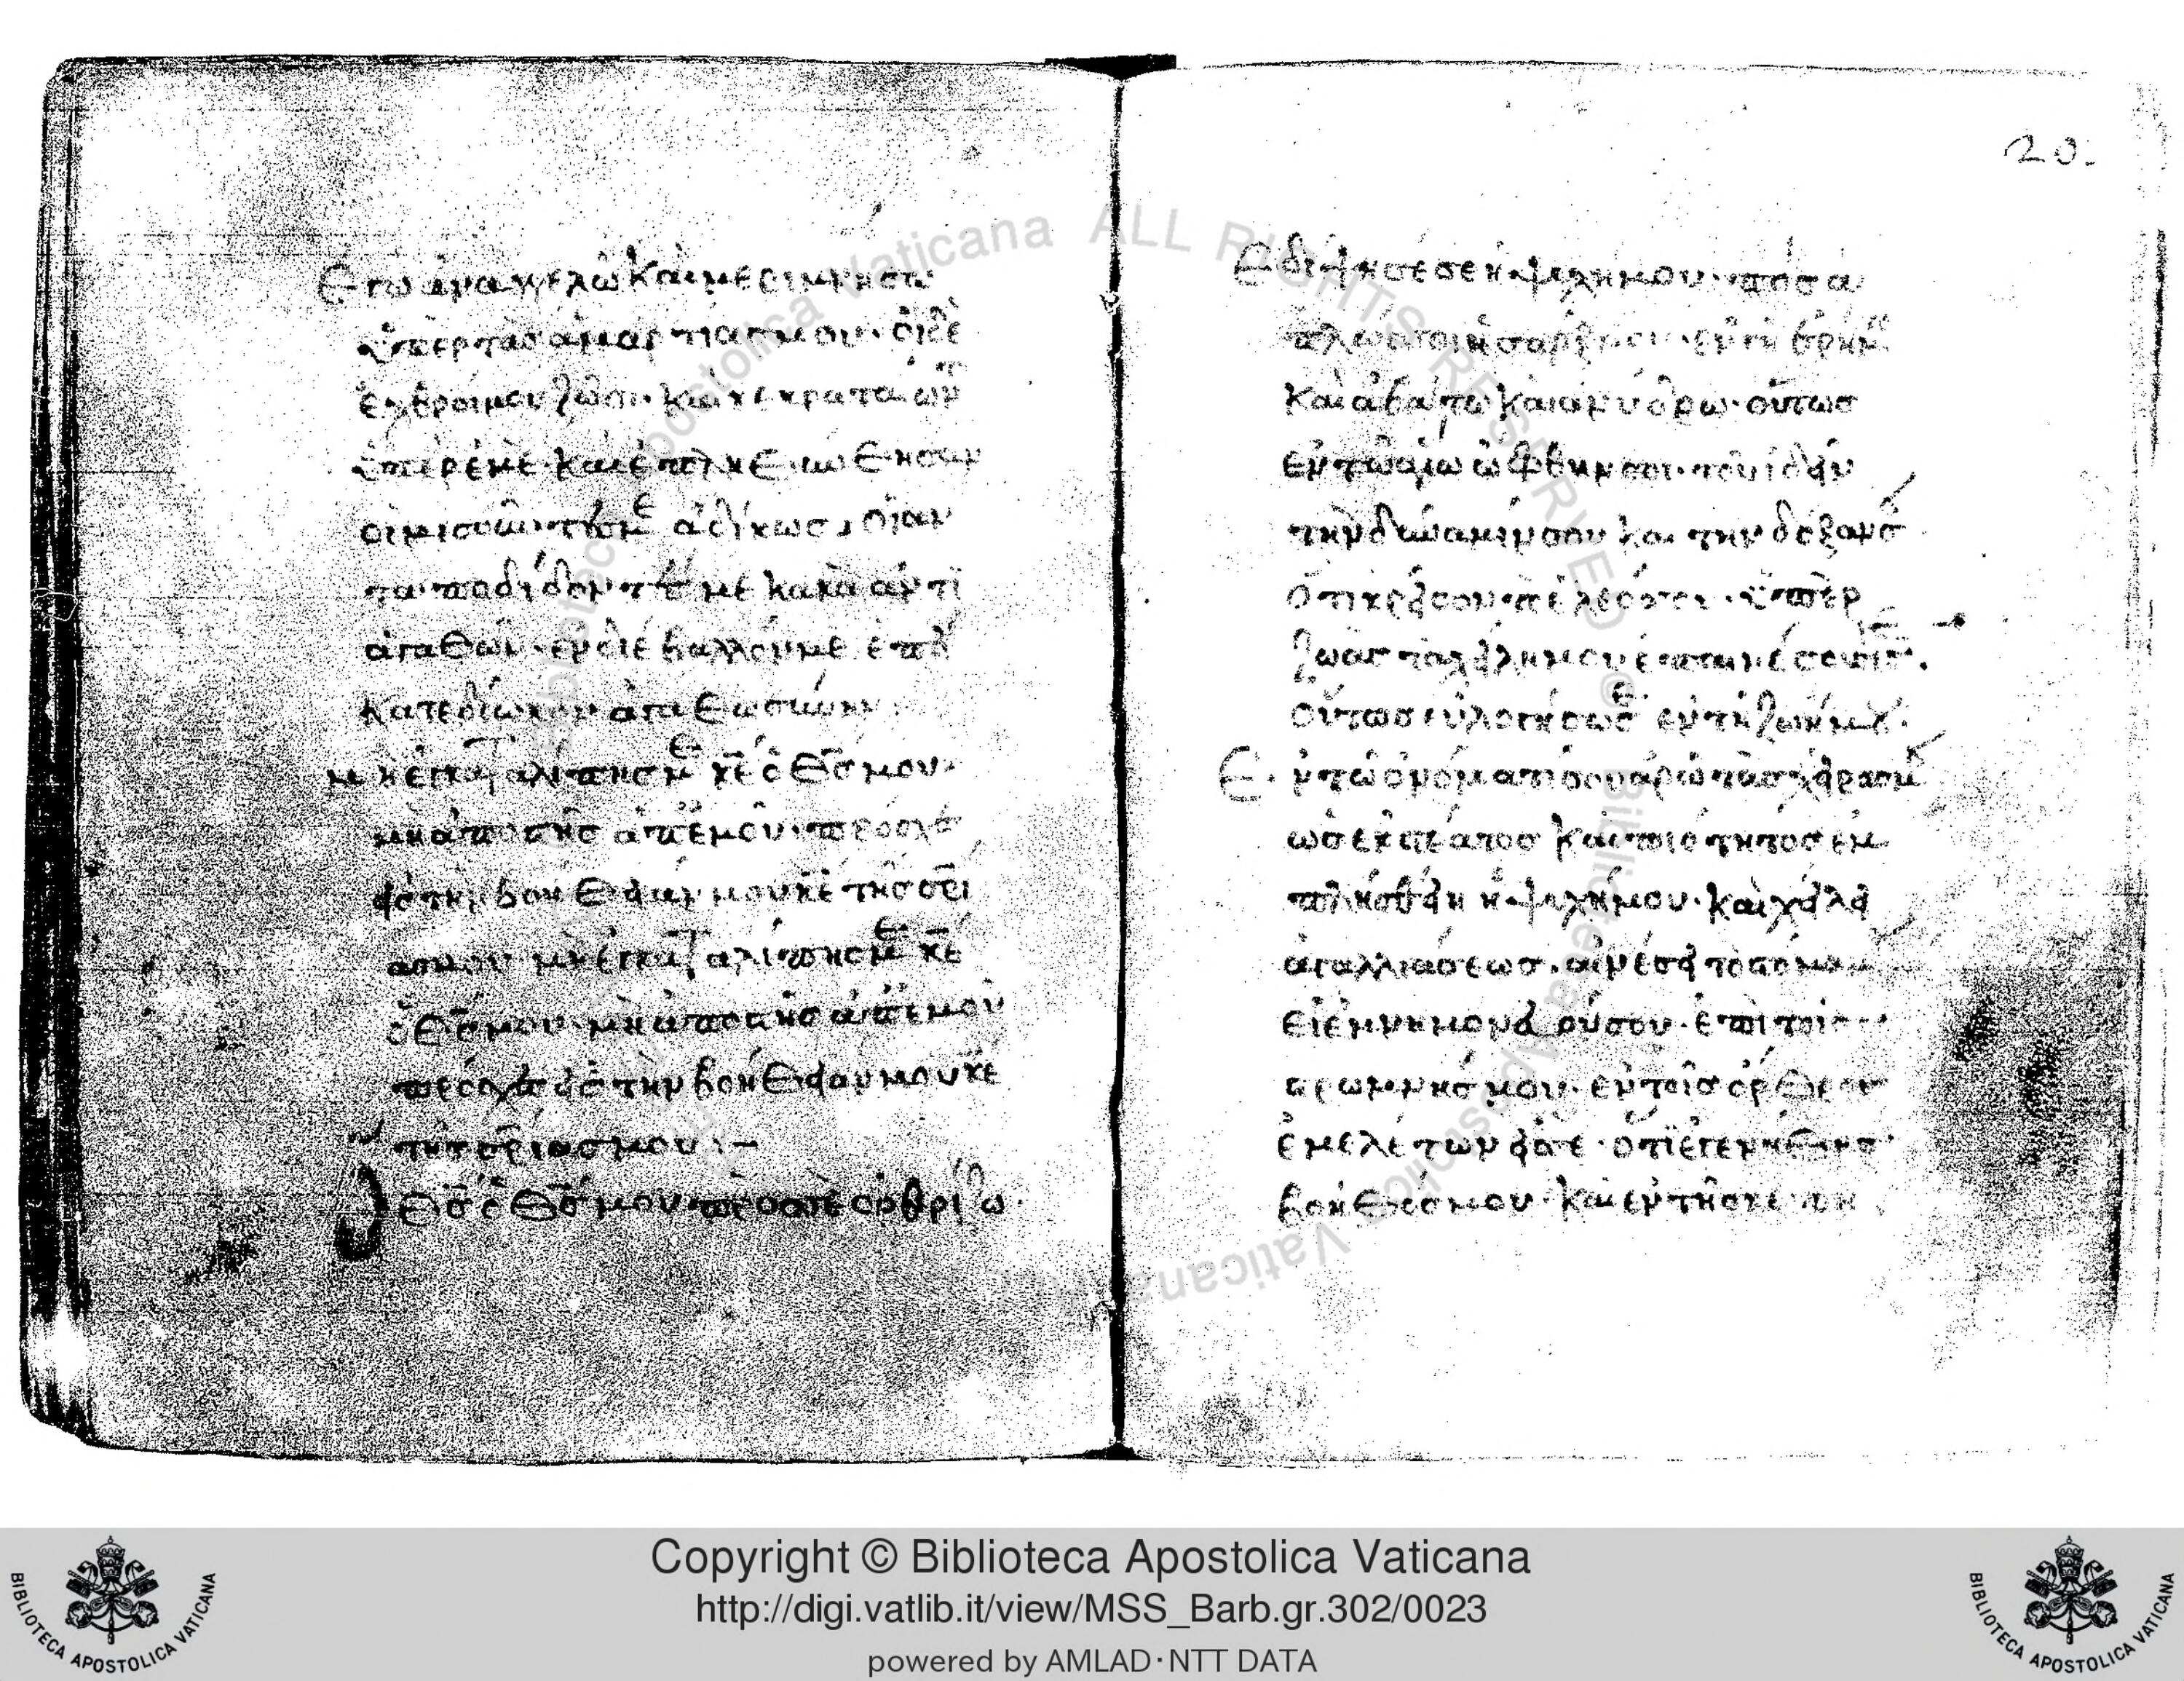 Εγω αναγγελῶ και μεριμνησω
ὑπερ τὰσ αμαρτιασ μου· ὁι δὲ
ἐχθροι μου ζῶσι· και κεκραταιων
ὑπερ ἐμὲ· και ἐπληθ
οι μισουντ μ ἀδίκωσ, Οι αν
ταποδίδοντ με κακα αντὶ
ἀγαθων· ενδιέβαλλόν με. ἐπὶ
κατεδίωκον ἀγαθωσύνην
μη ἐγκαταλιπησ μ κε ὁ θσ μου·
μη ἀποστῆσ ἀπ ἐμοῦ· προσχ
εσ την βοηθειαν μου κε τῆσ σρι
ασ μου μὴ ἐγκαταλίπησ μ κε
ὁ θσ μου· μὴ ἀποστῆσ ἀπ ἐμοῦ
προσχεσ εἰσ τὴν βοήθειαν μου κε
τησ σριασ μου :–
Ο θσ ὁ θσ μου προσ σὲ ορθριζω·
20.
Εδίψησέ σε ἡ ψυχή μου· ποσα
πλωσ σοι ἡ σαρξ μου· εν γη ερημ
και ἀβάτω και ανύδρω· οὕτωσ
εν τῶ αγίω ὠφθην σοι· τοῦ ἰδεῖν
τὴν δύναμίν σου και την δόξαν σ
ὅτι κρεῖσσον τὸ ἔλεόσ σου· ὑπὲρ
ζωάσ τα χείλη μου ἐπαινέσουσί σ.
Οὕτωσ εὐλογήσω σε εν τῆ ζωῆ μου·
Ε· ν τῶ ὀνόματί σου αρῶ τὰσ χεῖρασ μ
ωσ εκ στέατοσ και πιότητοσ εμ
πλησθείη ἡ ψυχή μου· και χείλη
ἀγαλλιάσεωσ. αἰνέσει τὸ στόμα μ
εἰ ἐμνημόνευόν σου· ἐπὶ τησ
στρωμνησ μου· εν τοῖσ ὀρθροισ
ἐμελέτων εισ σε· ὅτι ἐγενήθησ
βοηθόσ μου· και εν τῆ σκέπη
Copyright © Biblioteca Apostolica Vaticana
http://digi.vatlib.it/view/MSS_Barb.gr.302/0023
powered by AMLAD·NTT DATA
BIBLIOTECA APOSTOLICA VATICANA
BIBLIOTECA APOSTOLICA VATICANA